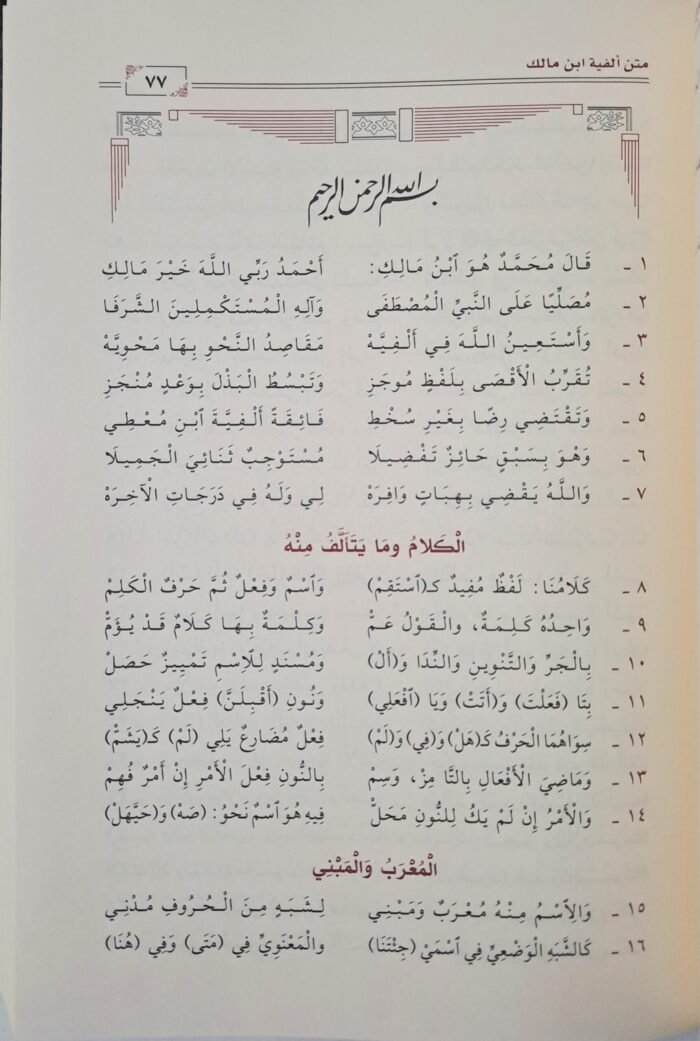 متن ألفية ابن مالك
٧٧
بسم الله الرحمن الرحيم
١ - قَالَ مُحَمَّدٌ هُوَ ٱبْنُ مَالِكِ: أَحْمَدُ رَبِّي اللَّهَ خَيْرَ مَالِكِ
٢ - مُصَلِّيًا عَلَى النَّبِيِّ الْمُصْطَفَى وَآلِهِ الْمُسْتَكْمِلِينَ الشَّرَفَا
٣ - وَأَسْتَعِينُ اللَّهَ فِي أَلْفِيَّهْ مَقَاصِدُ النَّحْوِ بِهَا مَحْوِيَّهْ
٤ - تُقَرِّبُ الْأَقْصَى بِلَفْظٍ مُوجَزِ وَتَبْسُطُ الْبَذْلَ بِوَعْدٍ مُنْجَزِ
٥ - وَتَقْتَضِي رِضًا بِغَيْرِ سُخْطِ فَائِقَةً أَلْفِيَّةَ ٱبْنِ مُعْطِي
٦ - وَهْوَ بِسَبْقٍ حَائِزٌ تَفْضِيلَا مُسْتَوْجِبٌ ثَنَائِيَ الْجَمِيلَا
٧ - وَاللَّهُ يَقْضِي بِهِبَاتٍ وَافِرَهْ لِي وَلَهُ فِي دَرَجَاتِ الْآخِرَهْ
الْكَلَامُ وَمَا يَتَأَلَّفُ مِنْهُ
٨ - كَلَامُنَا: لَفْظٌ مُفِيدٌ كَـ(ٱسْتَقِمْ) وَٱسْمٌ وَفِعْلٌ ثُمَّ حَرْفٌ الْكَلِمْ
٩ - وَاحِدُهُ كَلِمَةٌ، والْقَوْلُ عَمّْ وَكِلْمَةٌ بِهَا كَلَامٌ قَدْ يُؤَمّْ
١٠ - بِالْجَرِّ وَالتَّنْوِينِ وَالنِّدَا وَ(أَلْ) وَمُسْنَدٍ لِلِٱسْمِ تَمْيِيزٌ حَصَلْ
١١ - بِتَا (فَعَلْتَ) وَ(أَتَتْ) وَيَا (ٱفْعَلِي) وَنُونِ (أَقْبِلَنَّ) فِعْلٌ يَنْجَلِي
١٢ - سِوَاهُمَا الْحَرْفُ كَـ(هَلْ) وَ(فِي) وَ(لَمْ) فِعْلٌ مُضَارِعٌ يَلِي (لَمْ) كَـ(يَشَمّْ)
١٣ - وَمَاضِيَ الْأَفْعَالِ بِالتَّا مِزْ، وَسِمْ بِالنُّونِ فِعْلَ الْأَمْرِ إِنْ أَمْرٌ فُهِمْ
١٤ - وَالْأَمْرُ إِنْ لَمْ يَكُ لِلنُّونِ مَحَلّْ فِيهِ هُوَ ٱسْمٌ نَحْوُ: (صَهْ) وَ(حَيَّهَلْ)
الْمُعْرَبُ وَالْمَبْنِي
١٥ - وَالِٱسْمُ مِنْهُ مُعْرَبٌ وَمَبْنِي لِشَبَهٍ مِنَ الْحُرُوفِ مُدْنِي
١٦ - كَالشَّبَهِ الْوَضْعِيِّ فِي ٱسْمَيْ (جِئْتَنَا) والْمَعْنَوِيِّ فِي (مَتَى) وَفِي (هُنَا)